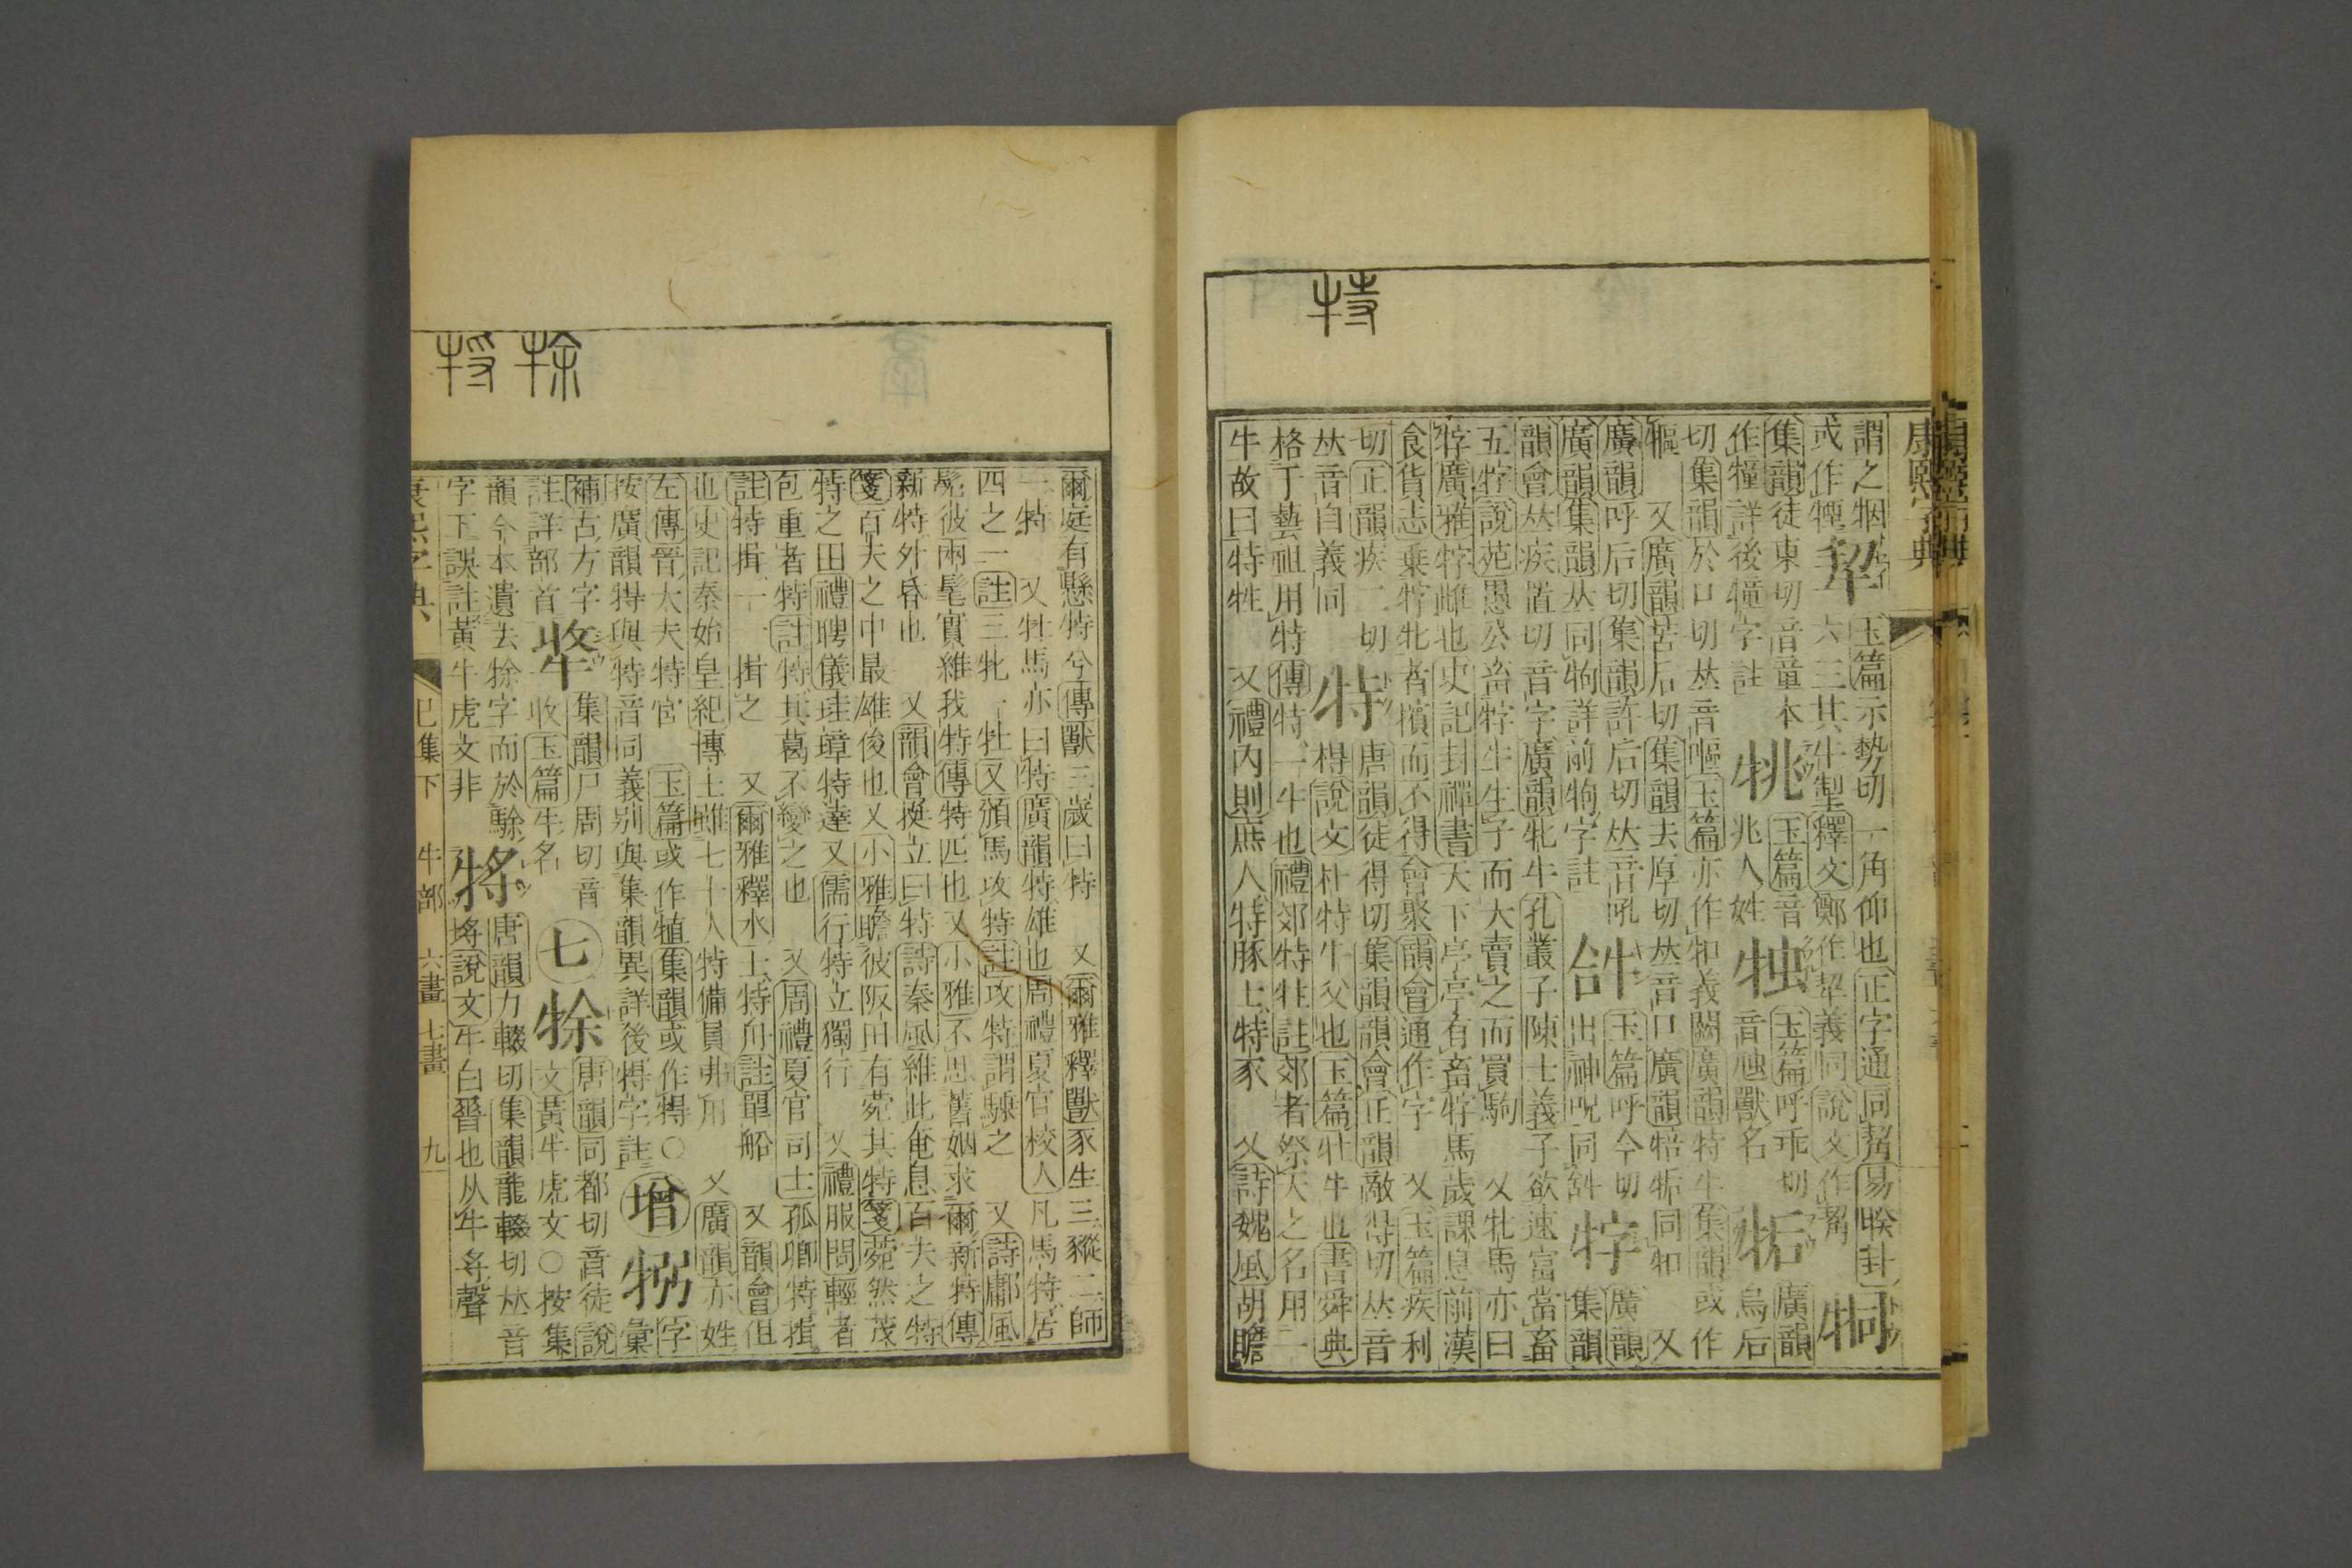 特
康熙字典
謂之牰 玉篇示勢切一角仰也正字通同觢易睽卦
或作 㸷 六三其牛掣釋文鄭作㸷義同說文作觢 𤙓
集韻徒東切音童本 玉篇音 玉篇呼乖切 廣韻
作犝詳後犝字註 兆人姓 音虺獸名 烏后
切集韻於口切𠀤音嘔玉篇亦作 義闕廣韻特牛集韻或作
又廣韻苦后切集韻去厚切𠀤音口廣韻 同 又
廣韻呼后切集韻許后切𠀤音吼 玉篇呼今切 牸 廣韻
廣韻集韻𠀤同 詳前 字註 出神呪同 集韻
韻會𠀤疾置切音字廣韻牝牛孔叢子陳士義子欲速富當畜
五牸說苑愚公畜牸牛生子而大賣之而買駒 又牝馬亦曰
牸廣雅牸雌也史記封禪書天下亭亭有畜牸馬歲課息前漢
食貨志乗牸牝者擯而不得會聚韻會通作字 又玉篇疾利
切正韻疾二切 特 唐韻徒得切集韻韻會正韻敵得切𠀤音
𠀤音自義同 說文朴特牛父也玉篇牡牛也書舜典
格于藝祖用特傳特一牛也禮郊特牲註郊者祭天之名用一
牛故曰特牲 又禮內則庶人特豚士特豕 又詩魏風胡瞻
㹞 㸹
爾庭有懸特兮傳獸三歲曰特 又爾雅釋獸豕生三豵二師
一特 又牡馬亦曰特廣韻特雄也周禮夏官校人凡馬特居
四之一註三牝一牡又頒馬攻特註攻特謂騬之 又詩鄘風
髧彼兩髦實維我特傳特匹也又小雅不思舊姻求爾新特傳
新特外昏也 又韻會挺立曰特詩秦風維此奄息百夫之特
箋百夫之中最雄俊也又小雅瞻彼阪田有菀其特箋菀然茂
特之田禮聘儀珪璋特達又儒行特立獨行 又禮服問輕者
包重者特註特其葛不變之也 又周禮夏官司士孤卿特揖
註特揖一一揖之 又爾雅釋水士特舟註單船 又韻會但
也史記秦始皇紀傳士雖七十人特備員弗用 又廣韻亦姓
左傳晉大夫特宮 玉篇或作犆集韻或作㝵○ 字
按廣韻㝵與特音同義別與集韻異詳後㝵字註 增 𤙤 彙
補古方字 集韻尸周切音 唐韻同都切音徒說
註詳部首 收玉篇牛名 七 㹞 文黃牛虎文○按集
韻今本遺去㹞字而於駼 唐韻力輟切集韻龍輟切𠀤音
字下誤註黃牛虎文非 㸹 埓說文牛白脊也从牛寽聲
康熙字典 巳集下 牛部 六畫 七畫 九